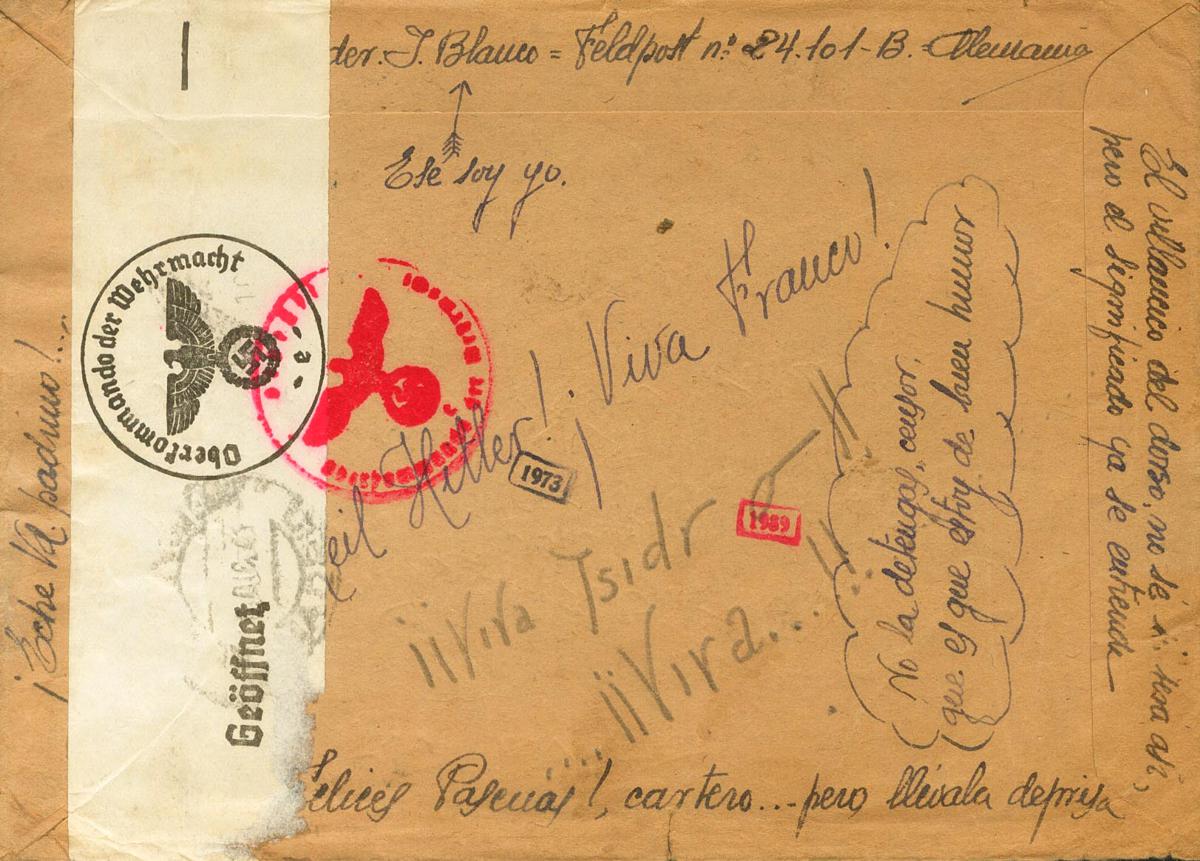 der. J. Blanco = Feldpost nº 24.101-B. = Alemania
Ese soy yo.
eil Hitler! ¡Viva Franco!
¡¡Viva Isidro!!
....¡¡Viva....!!..
(No la detengas, censor,
que es que estoy de buen humor)
El villancico del dorso, no sé si será así,
pero el significado ya se entiende
elices Pascuas!, cartero... pero llévala deprisa
¡Eche Vd padrino!...
Oberkommando der Wehrmacht
e
Geöffnet
1973
1989